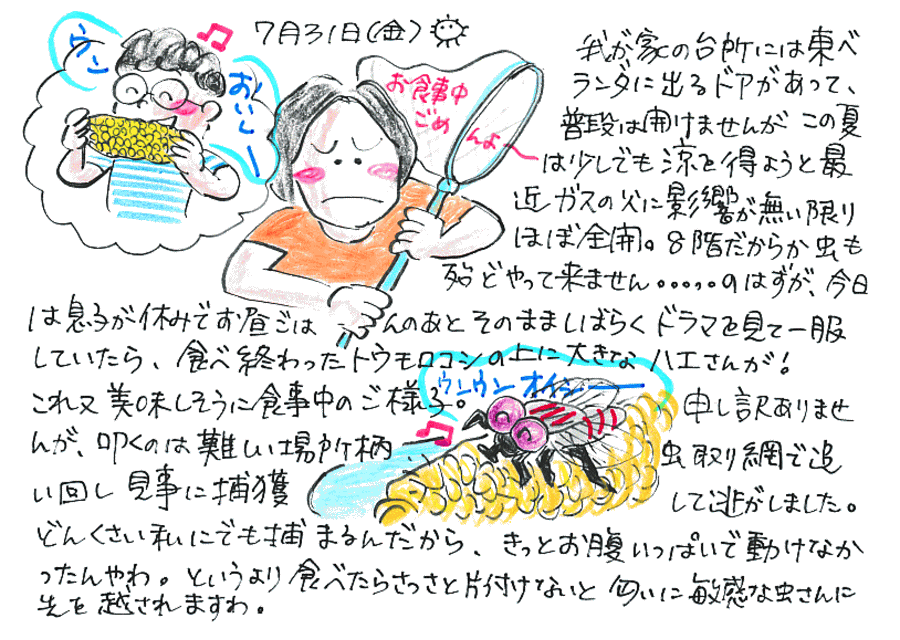 7月31日(金)
ウン
おいしー
お食事中
ごめんよ〜
我が家の台所には東べ
ランダに出るドアがあって、
普段は開けませんが この夏
は少しでも涼を得ようと最
近ガスの火に影響が無い限り
ほぼ全開。8階だからか虫も
殆どやって来ません……のはずが、今日
は息子が休みでお昼ごはんのあとそのまましばらくドラマを見て一服
していたら、食べ終わったトウモロコシの上に大きなハエさんが!
ウンウン オイシー
これ又美味しそうに食事中のご様子。 申し訳ありませ
んが、叩くのは難しい場所柄、虫取り網で追
い回し見事に捕獲 して逃がしました。
どんくさい私にでも捕まるんだから、きっとお腹いっぱいで動けなか
ったんやわ。というより食べたらさっさと片付けないと匂いに敏感な虫さんに
先を越されますわ。